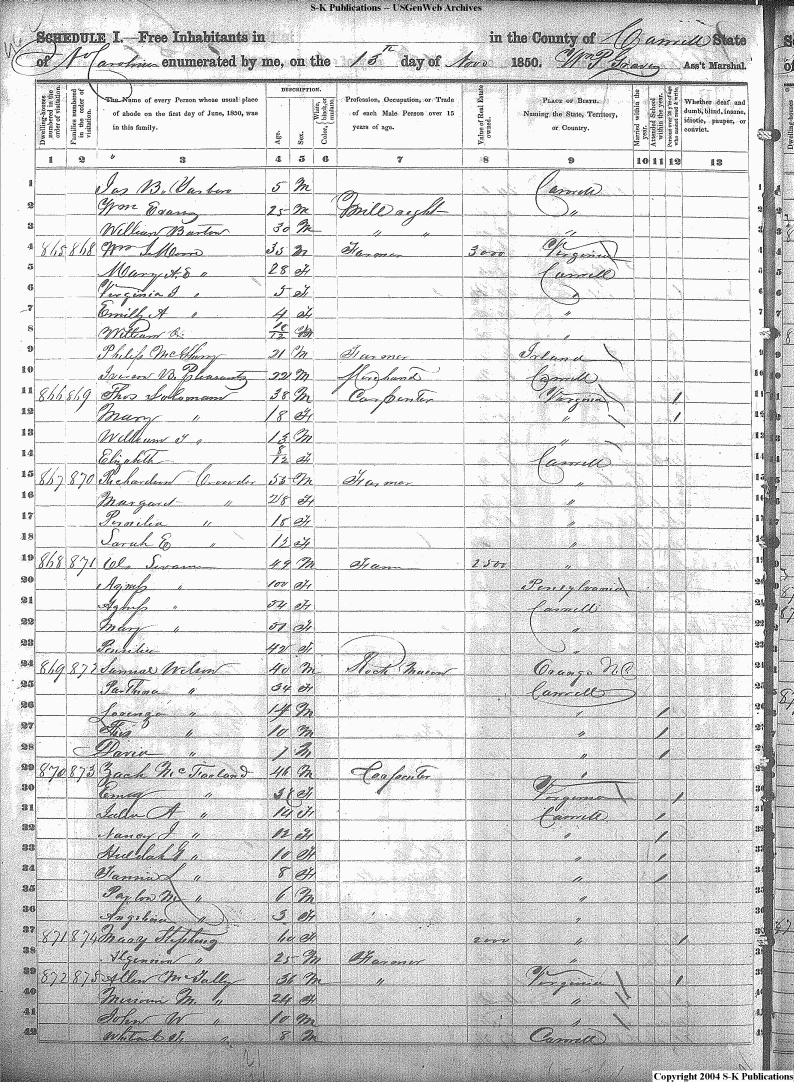 S-K Publications -- USGenWeb Archives
SCHEDULE I.—Free Inhabitants in in the County of Caswell State
of N. Carolina enumerated by me, on the 13th day of Novr 1850. Ass't Marshal.
Dwelling-houses numbered in the order of visitation.
Families numbered in the order of visitation.
The Name of every Person whose usual place of abode on the first day of June, 1850, was in this family.
DESCRIPTION.
Age.
Sex.
White, black, or mulatto. Color,
Profession, Occupation, or Trade of each Male Person over 15 years of age.
Value of Real Estate owned.
PLACE OF BIRTH. Naming the State, Territory, or Country.
Married within the year.
Attended School within the year.
Persons over 20 y'rs of age who cannot read & write.
Whether deaf and dumb, blind, insane, idiotic, pauper, or convict.
1 2 3 4 5 6 7 8 9 10 11 12 13
1 Jas B. 5 M Caswell 1
2 Wm Evans 25 M Mill right " 2
3 William Burton 30 M " " " 3
4 865 868 Wm Moore 35 M Farmer 3000 Virginia
5 Mary A E " 28 F Caswell
6 Virginia " 5 F "
7 Emily A " 4 F "
8 William 10/12 M "
9 Philip 21 M Farmer Irland
10 B. Pleasants 22 M Merchand Caswell
11 866 869 Thos 38 M Carpenter Virginia 1
12 Mary " 18 F " 1
13 William T " 13 M "
14 Elizabeth 8/12 F Caswell
15 867 870 Richardson Crowder 55 M Farmer "
16 Margaret " 28 F "
17 " 18 F "
18 Sarah E " 12 F "
19 868 871 Swann 49 M Farm 2500 "
20 Agness " 100 F Pensylvania
21 Agness " 54 F Caswell
22 Mary " 51 F "
23 42 F "
24 869 872 Samuel Wilson 40 M Rock Mason Orange NC
25 " 34 F Caswell
26 Lorenzo " 14 M " 1
27 Thos " 10 M " 1
28 David " 7 M " 1
29 870 873 Zach McFarland 46 M Carpenter "
30 " 38 F Virginia 1
31 A " 14 F Caswell 1
32 Nancy J " 12 F " 1
33 Huldah G " 10 F " 1
34 " 8 F " 1
35 M " 6 M "
36 Angelina " 3 F "
37 871 874 Mary Stephens 60 F 2000 " 1
38 " 25 M Farmer "
39 872 875 Allen 36 M " Virginia 1
40 M. " 24 F "
41 John W " 10 M "
42 " 8 M Caswell
Copyright 2004 S-K Publications